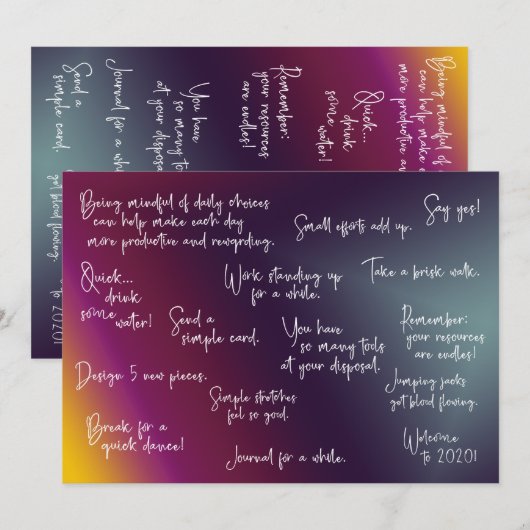 Send a
simple card.
Journal for a while.
You have
so many to
at your disposal
Remember:
your resources
are endless!
Quick...
drink
some
water!
Being mindful of
can help make e
more productive an
get blood flowing.
to 2020!
Being mindful of daily choices
can help make each day
more productive and rewarding.
Small efforts add up.
Say yes!
Quick...
drink
some
water!
Work standing up
for a while.
Take a brisk walk.
Send a
simple card.
You have
so many tools
at your disposal.
Remember:
your resources
are endles!
Design 5 new pieces.
Simple stretches
feel so good.
Jumping jacks
get blood flowing.
Break for a
quick dance!
Journal for a while.
Welcome
to 2020!